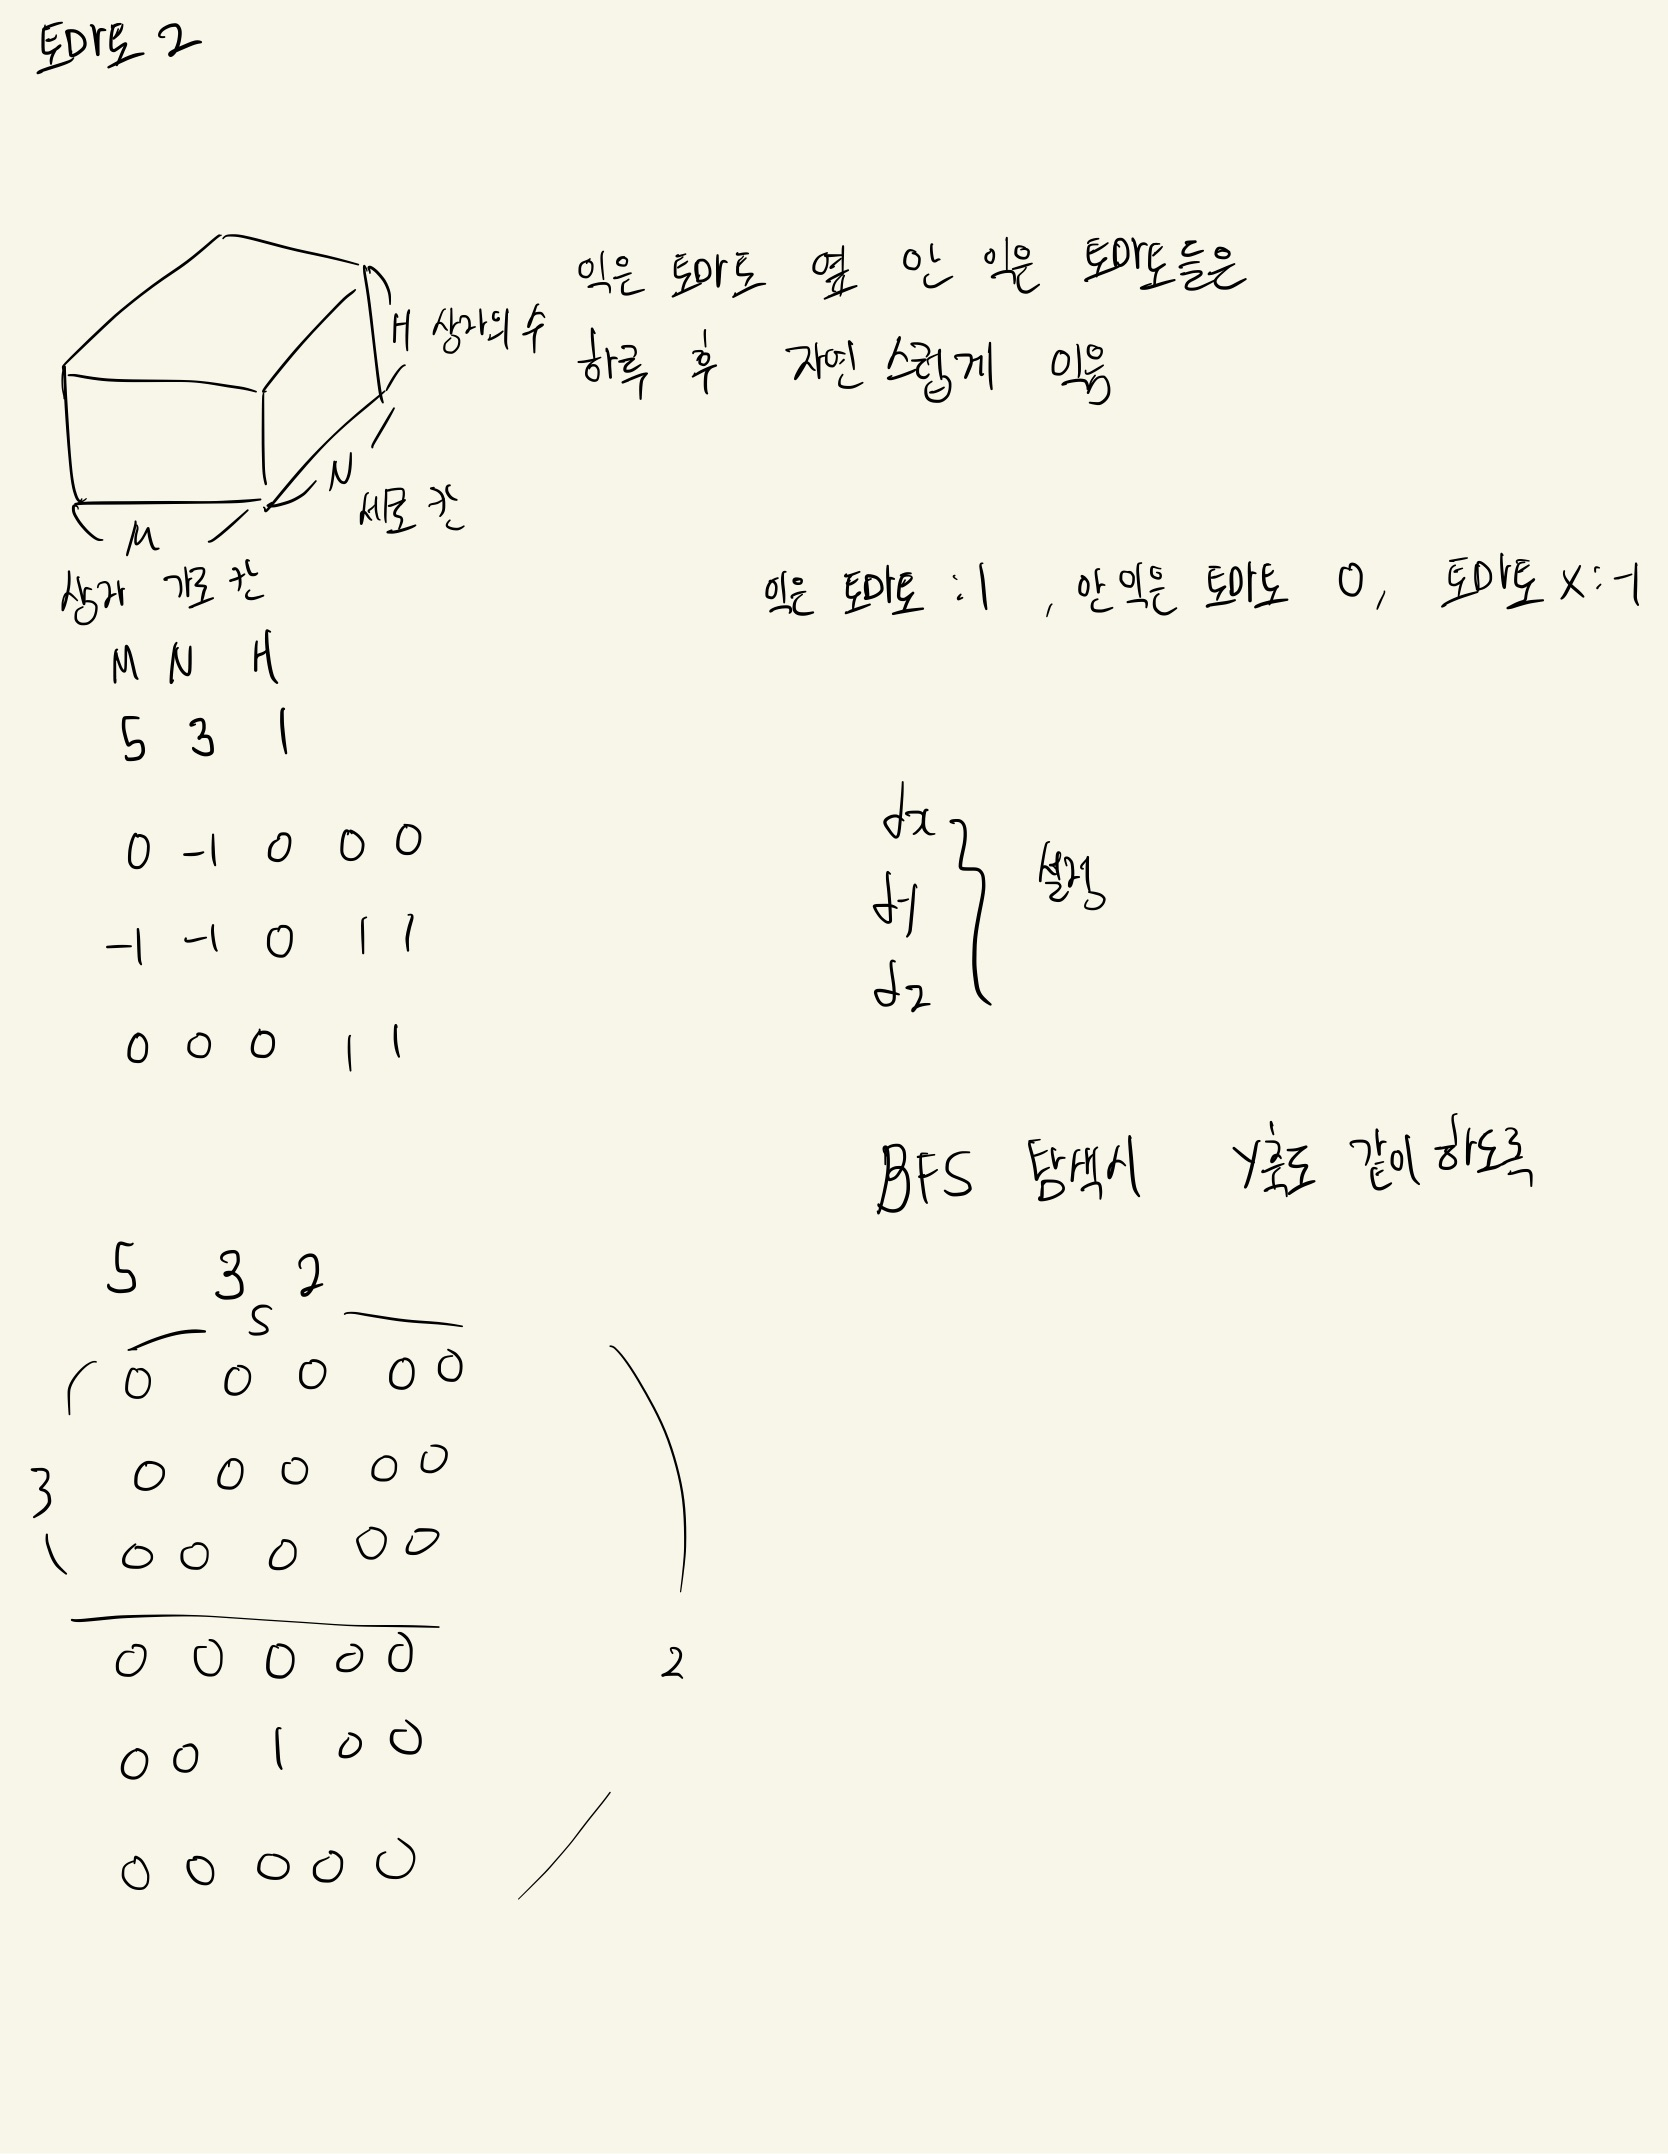 토마토 2
익은 토마토 옆 안 익은 토마토들은
H 상자의 수
하루 후 자연스럽게 익음
N
세로 칸
M
상자 가로 칸
익은 토마토 : 1 , 안익은 토마토 0, 토마토 X : -1
M N H
5 3 1
0 -1 0 0 0
-1 -1 0 1 1
0 0 0 1 1
dx
dy
dz
설정
BFS 탐색시 Y축도 같이 하도록
5 3 2
5
0 0 0 0 0
0 0 0 0 0
3
0 0 0 0 0
0 0 0 0 0
2
0 0 1 0 0
0 0 0 0 0